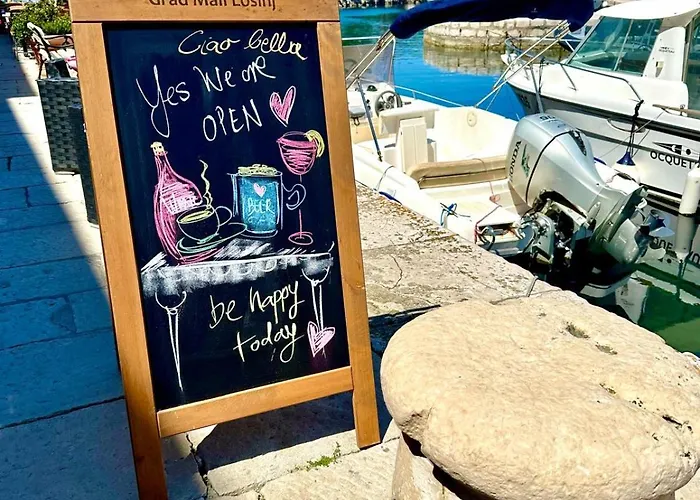 Grad Mali Lošinj
Ciao bella
Yes We are
OPEN
BEER
be happy
today
HONDA